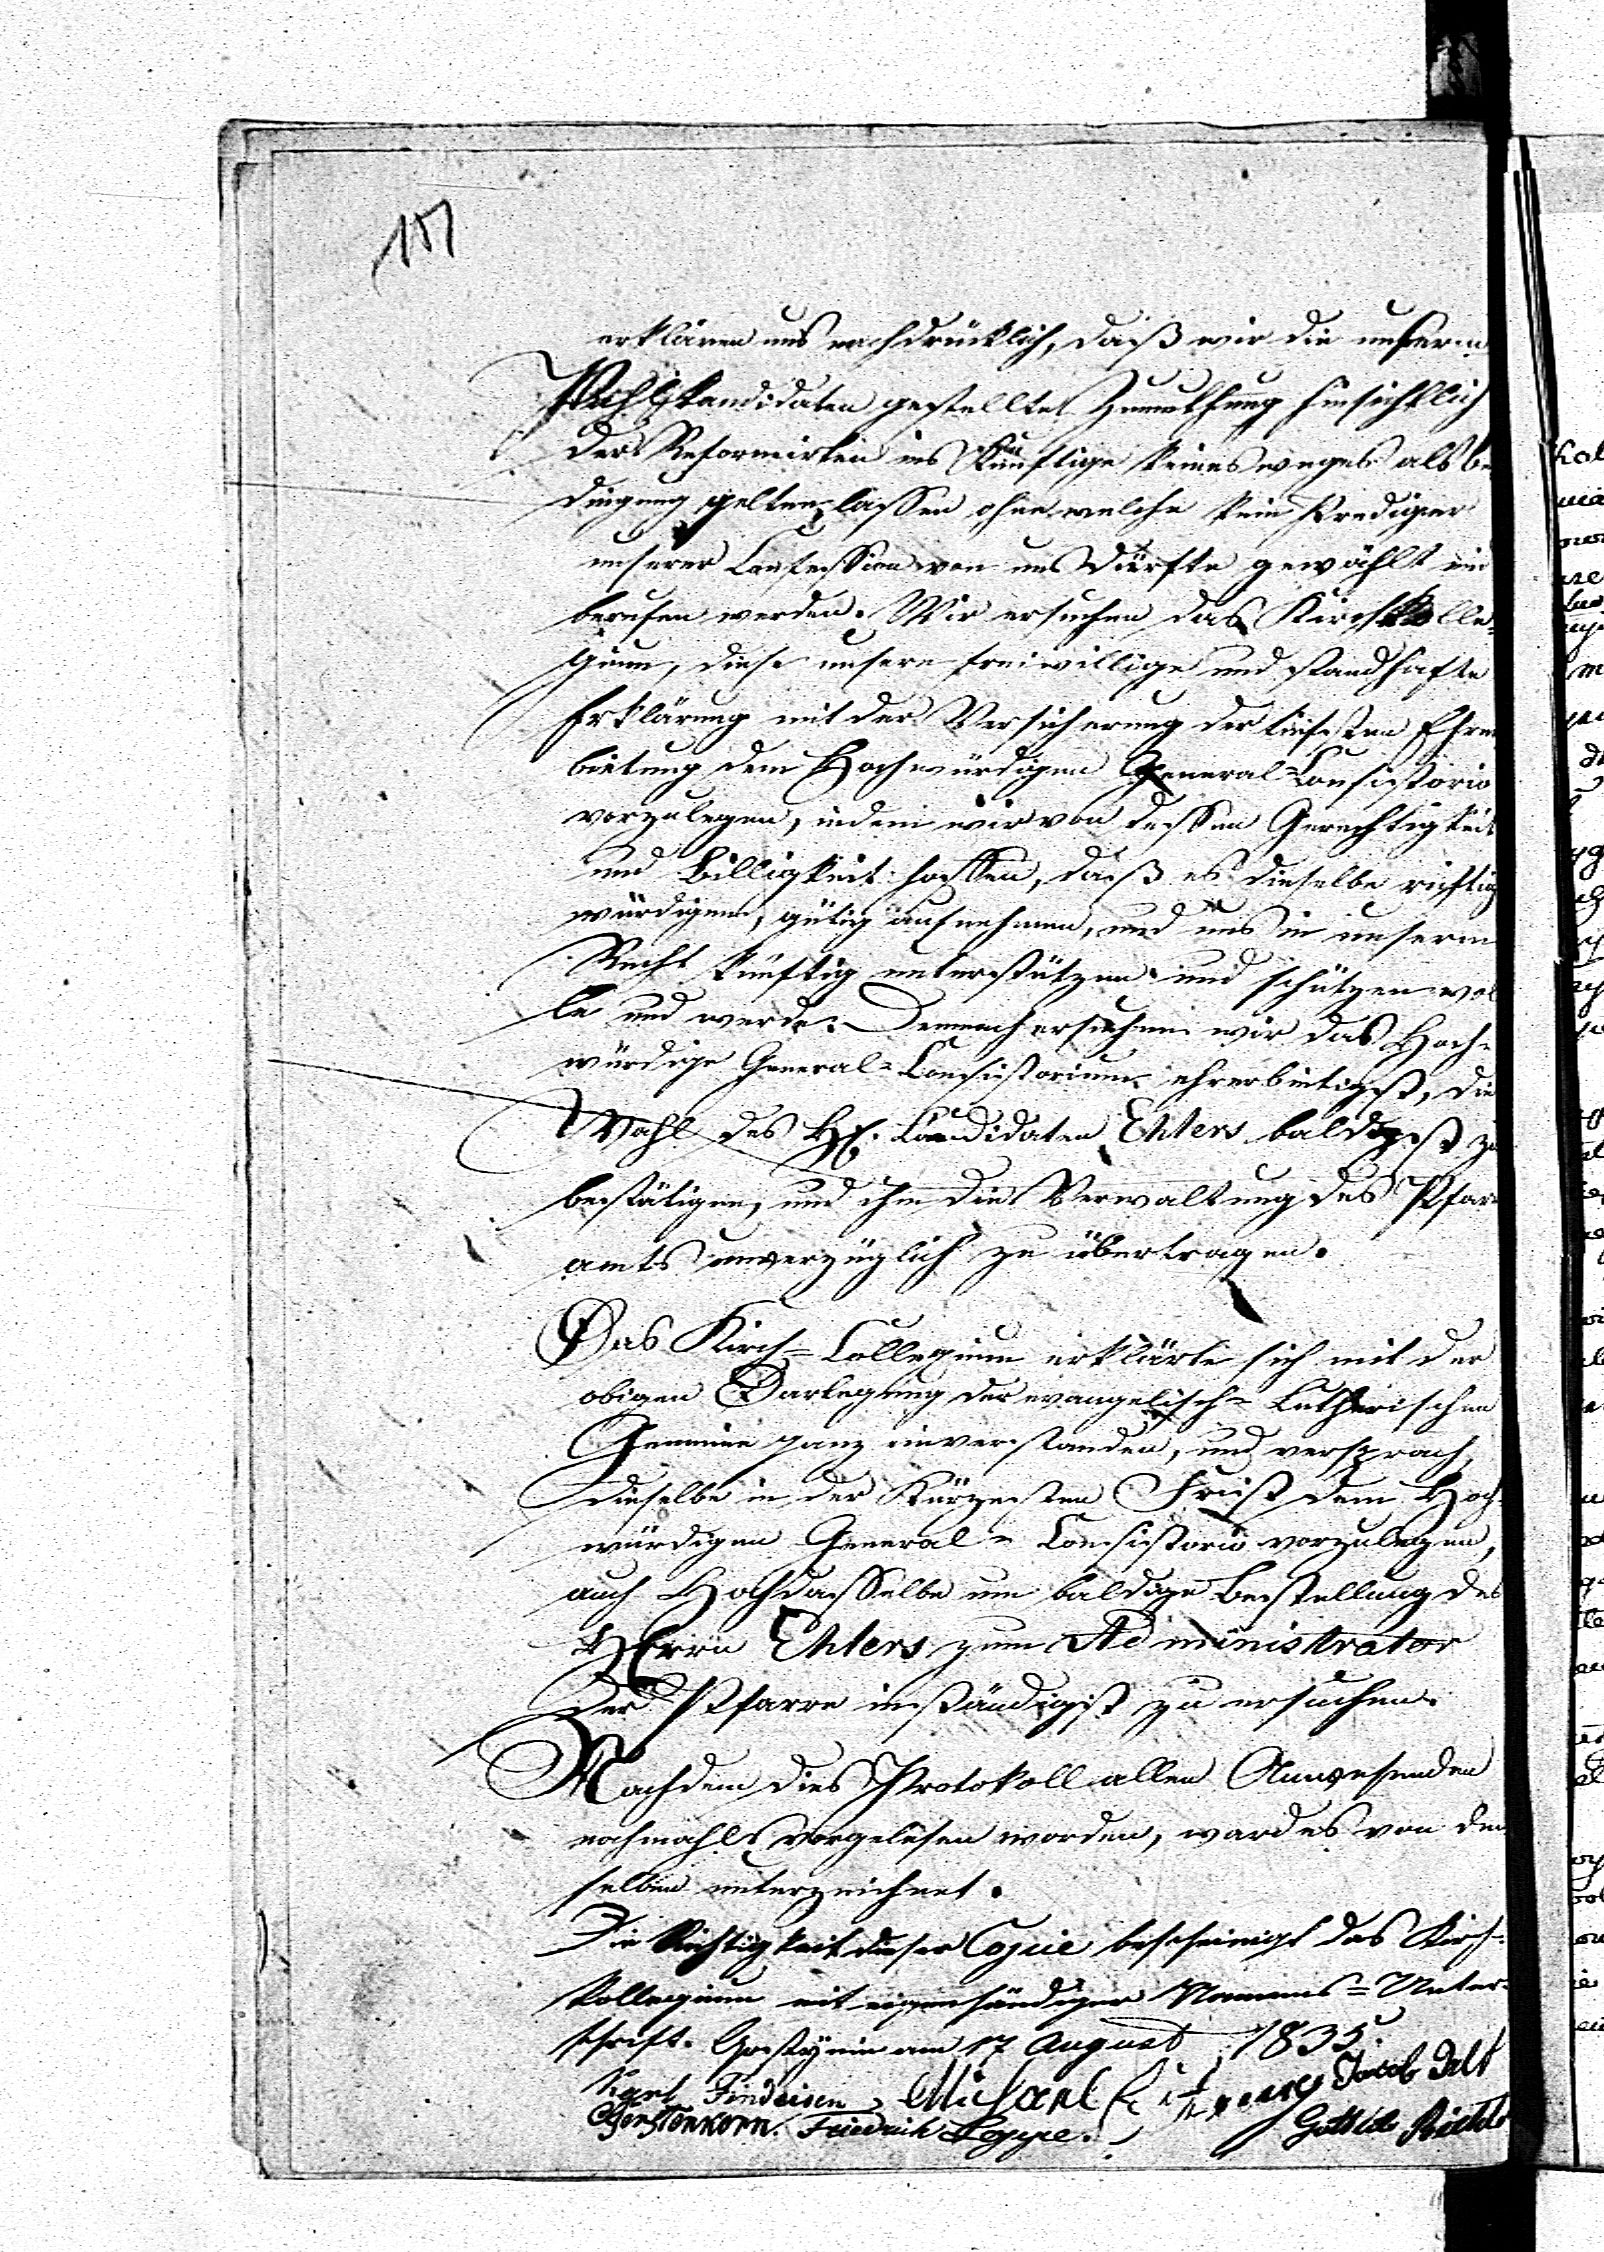 157
erklären uns nachdrücklich, daß wir die unserm
Wahlkandidaten gestellte Zumuthung hinsichtlich
der Reformirten ins Künftige keinesweges als be
dingung gelten lassen ohne welche kein Prediger
unserer Confession von uns dürfte gewählt und
berufen werden. Wir ersuchen das Kirchkolle-
gium, diese unsere freiwillige und standhafte
Erklärung mit der Versicherung der tiefesten Ehrer
bietung dem Hochwürdigen General-Consistorio
vorzulegen, indem wir von dessen Gerechtigkeit
und Billigkeit hoffen, daß es dieselbe richtig
würdigen, gütig aufnehmen, und uns in unserm
Recht künftig unterstützen und schützen wol
le und werde. Demnach ersuchen wir das Hoch-
würdige General-Consistorium ehrerbietigst, die
Wahl des H. Candidaten Ehlers baldigst zu
bestätigen, und ihm die Verwaltung des Pfarr
amts unverzüglich zu übertragen.
Das Kirch-Collegium erklärte sich mit der
obigen Darlegung der evangelisch-Lutherischen
Gemeine ganz einverstanden, und versprach,
dieselbe in der Kürzesten Frist dem Hoch-
würdigen General-Consistorio vorzulegen,
auch Hochdasselbe um baldige Bestellung des
Herrn Ehlers zum Administrator
der Pfarre inständigst zu ersuchen.
Nachdem dies Protokoll allen Anwesenden
nochmahls vorgelesen worden, ward es von den
selben unterzeichnet.
Die Richtigkeit dieser Copie bescheinigt das Kirch-
Kollegium mit eigenhändiger Namens-Unter-
schrift. Gostynin am 17 August 1835.
Karl Findeisen, Michael Jacob
Gerstenkorn. Friedrich Koppe. Gottlieb